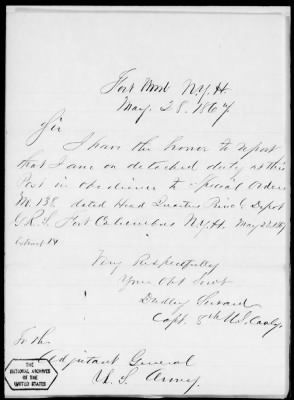 Fort Wood N.Y.H.
May. 28. 1867
Sir
I have the honor to report
that I am on detached duty at this
Post in obedience to Special Orders
No. 138, dated Head Quarters Princl Depot
G.R.S. Fort Columbus N.Y.H. May 1867
Extract IV
Very Respectfully
Your Obt Servt
Dudley Seward
Capt. 8th U.S. Cavly.
To the
Adjutant General
U.S. Army.
THE
NATIONAL ARCHIVES
OF THE
UNITED STATES